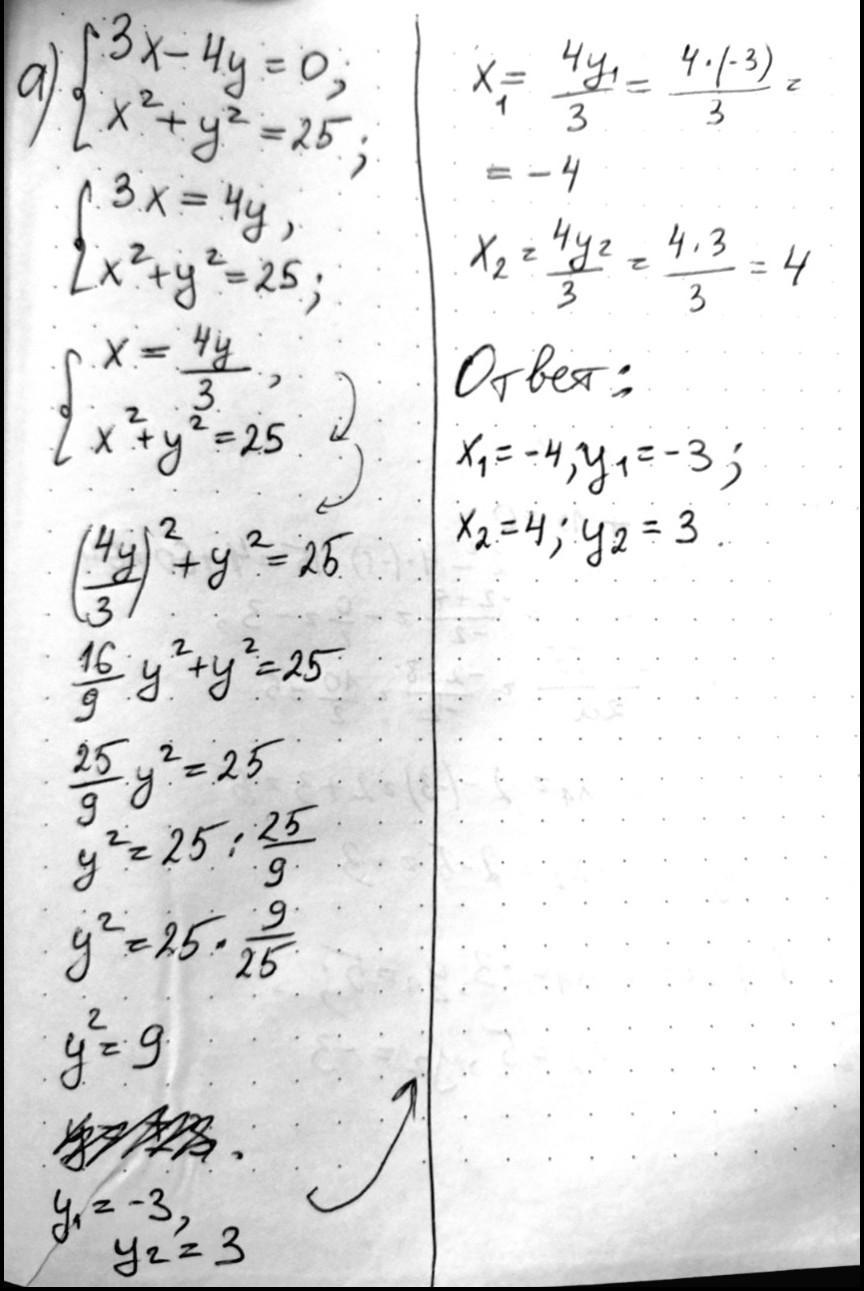 а) { 3x - 4y = 0,
x² + y² = 25;
{ 3x = 4y,
x² + y² = 25;
{ x = 4y/3,
x² + y² = 25
(4y/3)² + y² = 25
16/9 y² + y² = 25
25/9 y² = 25
y² = 25 : 25/9
y² = 25 · 9/25
y² = 9
y₁ = -3,
y₂ = 3
x₁ = 4y₁/3 = 4·(-3)/3 =
= -4
x₂ = 4y₂/3 = 4·3/3 = 4
Ответ:
x₁ = -4, y₁ = -3;
x₂ = 4; y₂ = 3.